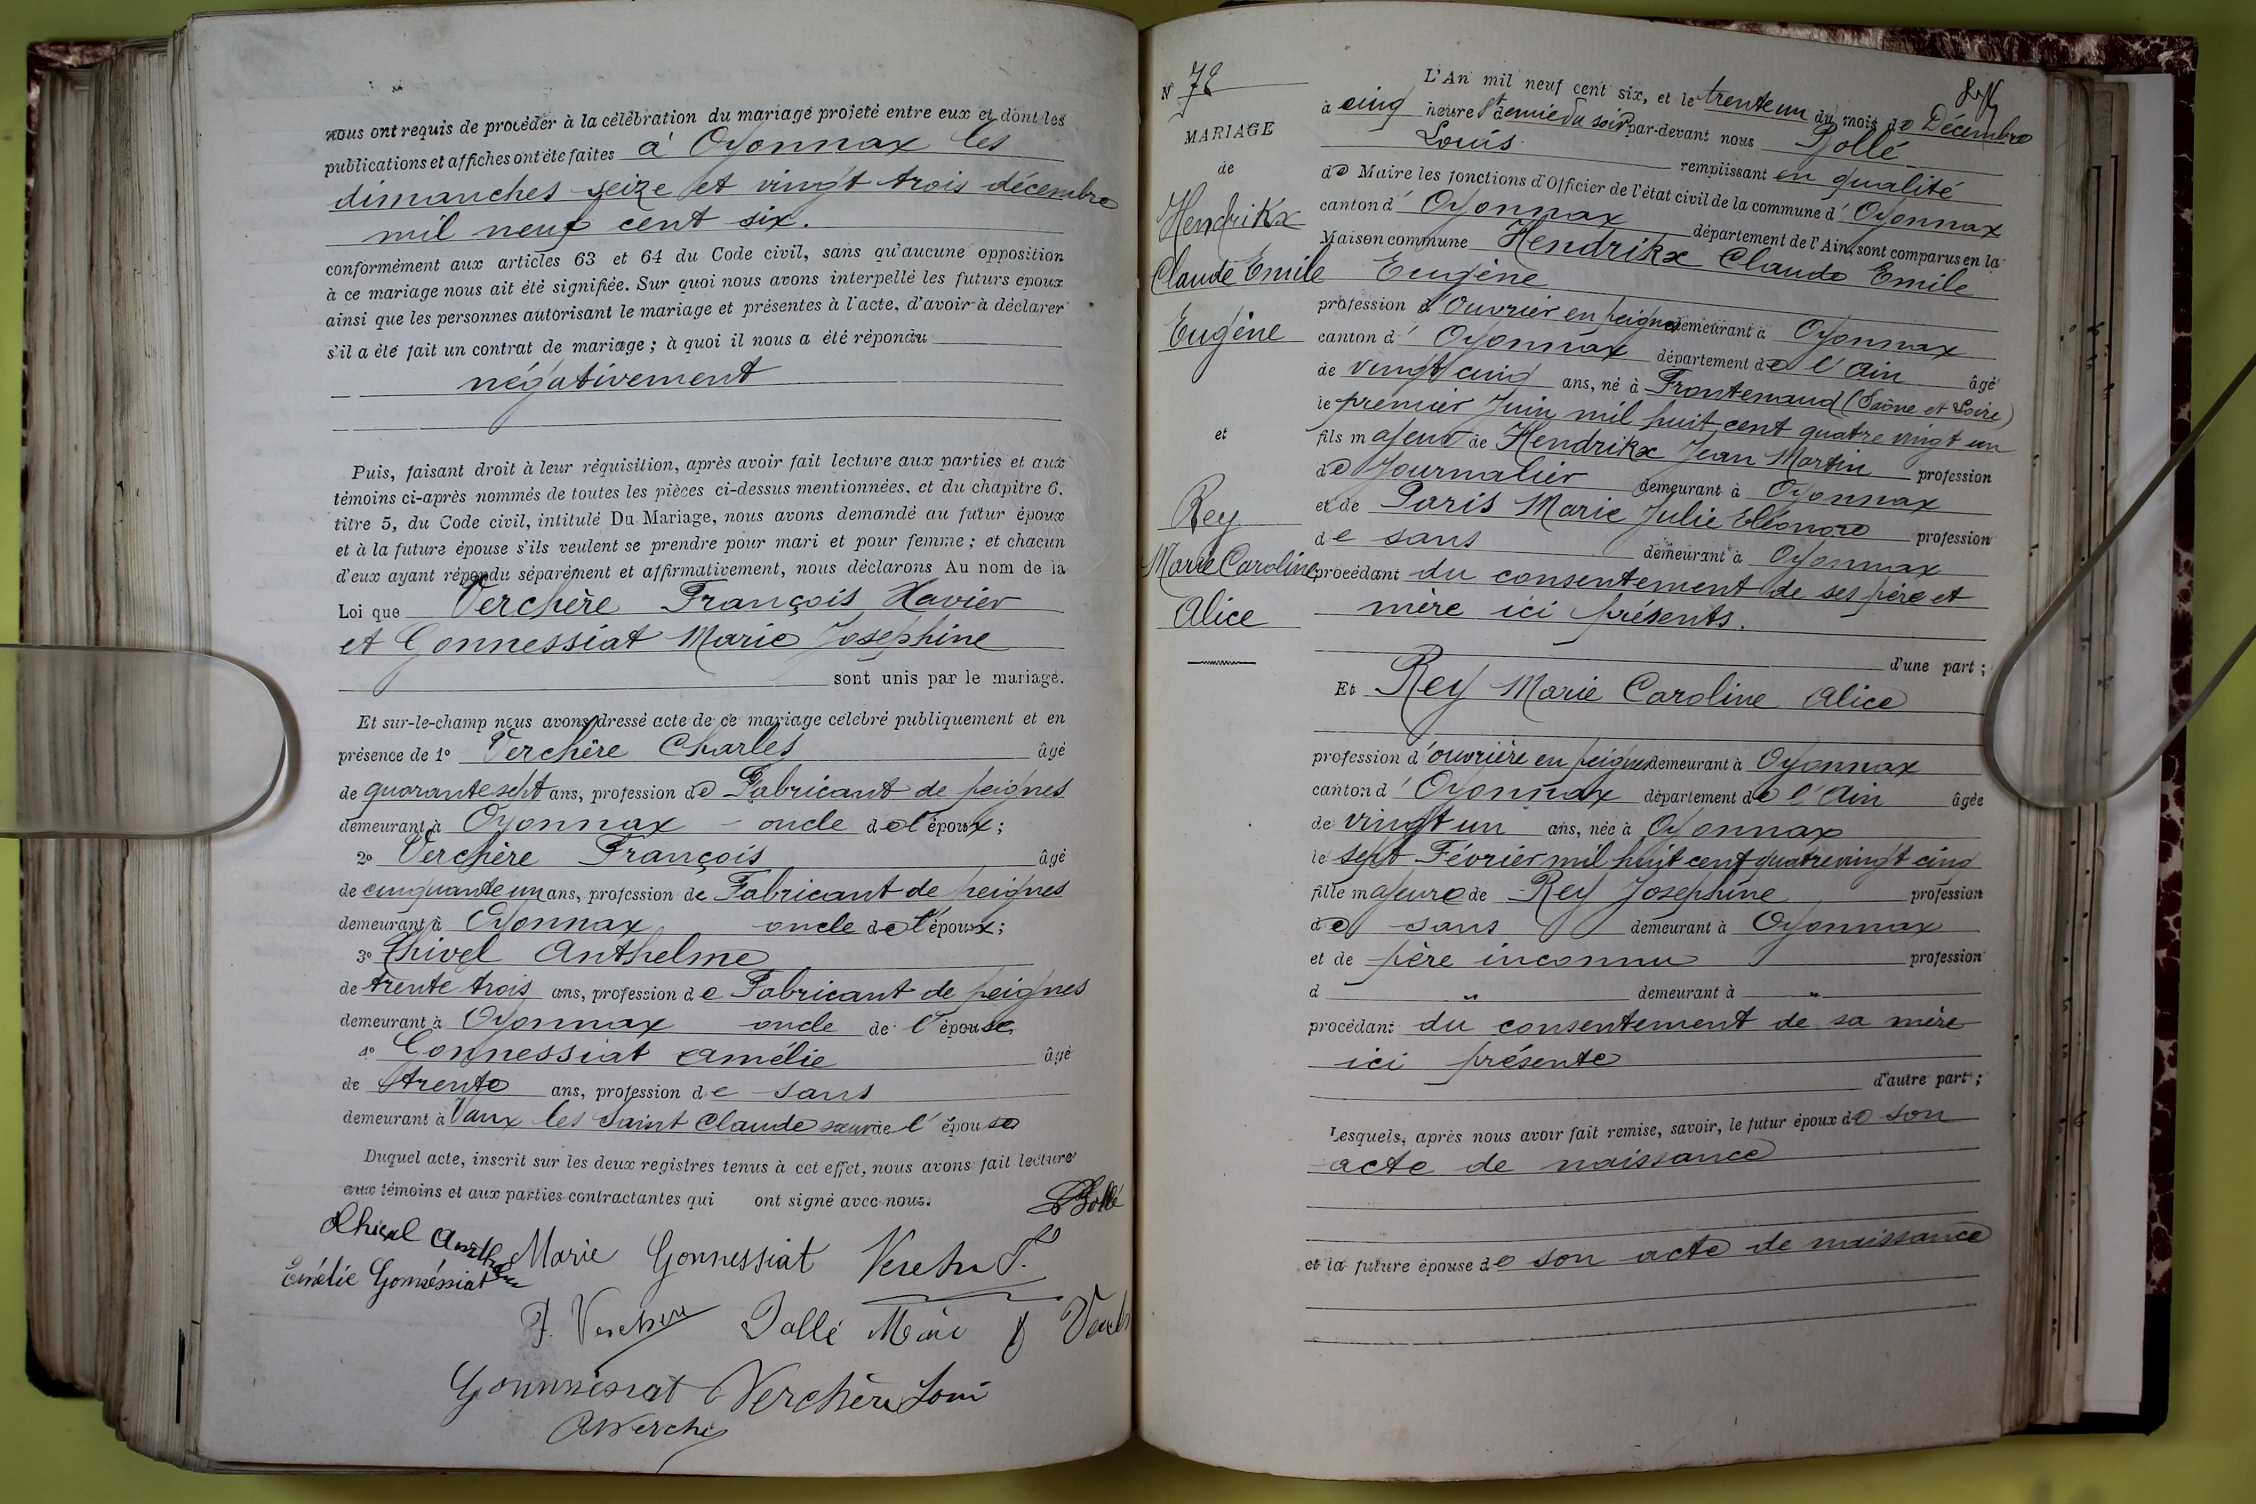 nous ont requis de procéder à la célébration du mariage projeté entre eux et dont les
publications et affiches ont été faites à Oyonnax les
dimanches seize et vingt trois décembre
mil neuf cent six.
conformément aux articles 63 et 64 du Code civil, sans qu'aucune opposition
à ce mariage nous ait été signifiée. Sur quoi nous avons interpellé les futurs époux
ainsi que les personnes autorisant le mariage et présentes à l'acte, d'avoir à déclarer
s'il a été fait un contrat de mariage ; à quoi il nous a été répondu
négativement
Puis, faisant droit à leur réquisition, après avoir fait lecture aux parties et aux
témoins ci-après nommés de toutes les pièces ci-dessus mentionnées, et du chapitre 6,
titre 5, du Code civil, intitulé Du Mariage, nous avons demandé au futur époux
et à la future épouse s'ils veulent se prendre pour mari et pour femme ; et chacun
d'eux ayant répondu séparément et affirmativement, nous déclarons Au nom de la
Loi que Verchère François Xavier
et Gonnessiat Marie Josephine
sont unis par le mariage.
Et sur-le-champ nous avons dressé acte de ce mariage célébré publiquement et en
présence de 1° Verchère Charles âgé
de quarante sept ans, profession de Fabricant de peignes
demeurant à Oyonnax - oncle de l'époux ;
2° Verchère François âgé
de cinquante un ans, profession de Fabricant de peignes
demeurant à Oyonnax oncle de l'époux ;
3° Chivel Anthelme
de trente trois ans, profession de Fabricant de peignes
demeurant à Oyonnax oncle de l'épouse
4° Gonnessiat Amélie âgé
de trente ans, profession de sans
demeurant à Vaux les Saint Claude sœur de l'épouse
Duquel acte, inscrit sur les deux registres tenus à cet effet, nous avons fait lecture
aux témoins et aux parties contractantes qui ont signé avec nous.
Marie Gonnessiat
Emélie Gonnéssiat
Gonnnessiat Verchère
N° 72
MARIAGE
de
Hendrikx
Claude Emile
Eugène
et
Rey
Marie Caroline
Alice
L'An mil neuf cent six, et le trente un du mois de Décembre
à cinq heure et demie du soir par-devant nous Bollé
Louis remplissant en qualité
de Maire les fonctions d'Officier de l'état civil de la commune d'Oyonnax
canton d'Oyonnax département de l'Ain, sont comparus en la
Maison commune Hendrikx Claude Emile
Eugène
profession d'Ouvrier en peignes demeurant à Oyonnax
canton d'Oyonnax département de l'Ain âgé
de vingt cinq ans, né à Frontenaud (Saône et Loire)
le premier Juin mil huit cent quatre vingt un
fils majeur de Hendrikx Jean Martin profession
de Journalier demeurant à Oyonnax
et de Paris Marie Julie Eléonore profession
de sans demeurant à Oyonnax
procédant du consentement de ses père et
mère ici présents.
d'une part ;
Et Rey Marie Caroline Alice
profession d'ouvrière en peignes demeurant à Oyonnax
canton d'Oyonnax département de l'Ain âgée
de vingt un ans, née à Oyonnax
le sept Février mil huit cent quatre vingt cinq
fille majeure de Rey Josephine profession
de sans demeurant à Oyonnax
et de père inconnu profession
d " demeurant à "
procédant du consentement de sa mère
ici présente
d'autre part ;
Lesquels, après nous avoir fait remise, savoir, le futur époux de son
acte de naissance
et la future épouse de son acte de naissance